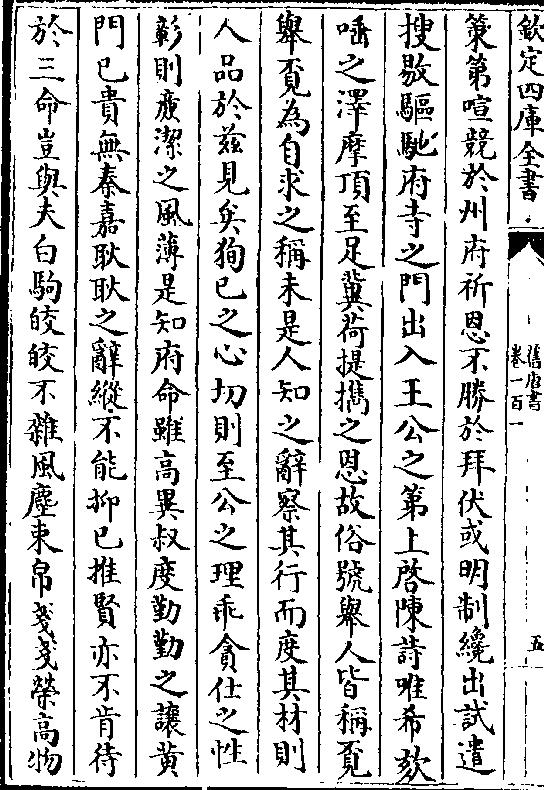 欽定四庫全書
舊唐書
卷一百一
五
策第喧競於州府祈恩不勝於拜伏或明制纔出試遣
搜敭驅馳府寺之門出入王公之第上啓陳詩唯希欬
唾之澤摩頂至足冀荷提擕之恩故俗號舉人皆稱覓
舉覓為自求之稱未是人知之辭察其行而度其材則
人品於兹見矣狥已之心切則至公之理乖貪仕之性
彰則㢘潔之風薄是知府命雖高異叔度勤勤之讓黄
門已貴無秦嘉耿耿之辭縱不能抑已推賢亦不肯待
於三命豈與夫白駒皎皎不雜風塵束帛戔戔榮高物